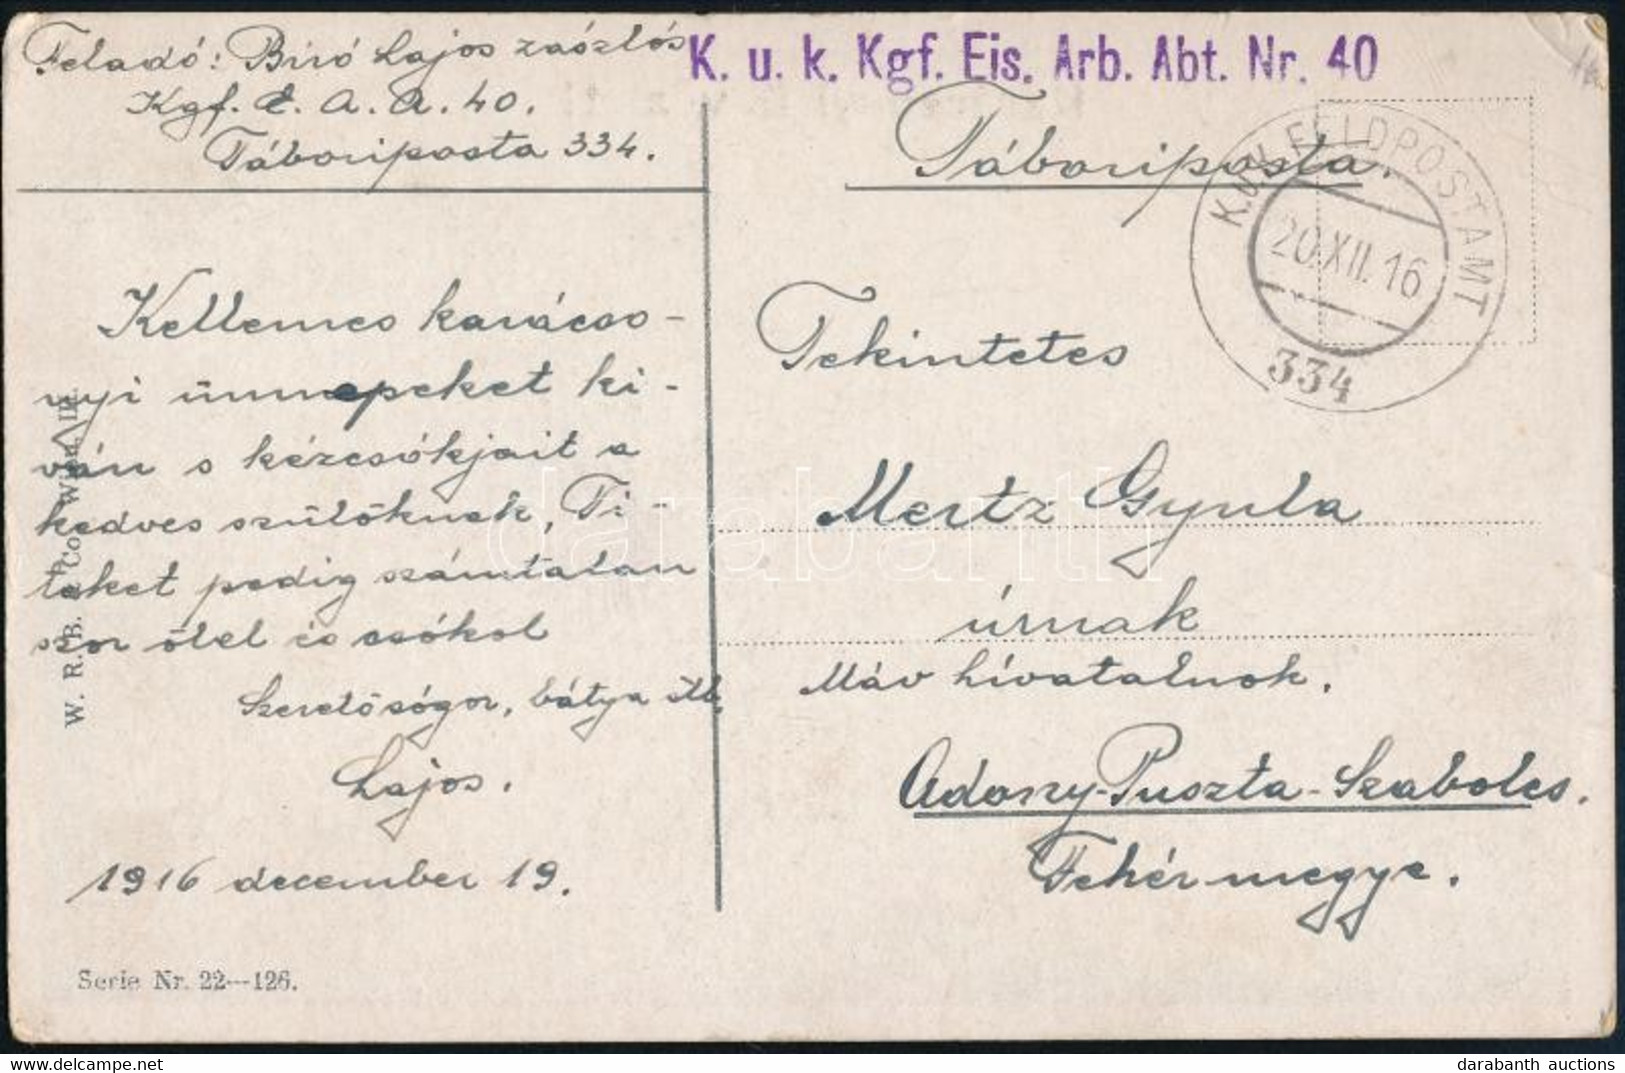 Feladó: Biró Lajos zászlós
Kgf. E. A. A. 40.
Táboriposta 334.
K. u. k. Kgf. Eis. Arb. Abt. Nr. 40
Táboriposta.
K.u.K. FELDPOSTAMT
20.XII.16
334
Kellemes karácso-
nyi ünnepeket ki-
ván s kézcsókjait a
kedves szülőknek, Ti-
teket pedig számtalan
szor ölel és csókol
Szerető sógor, bátya stb.
Lajos.
1916 december 19.
Tekintetes
Mertz Gyula
úrnak
Máv hívatalnok.
Adony-Puszta-Szabolcs.
Fehérmegye.
W. R. B. & Co, Wien, III.
Serie Nr. 22—126.
darabanth
darabanth auctions